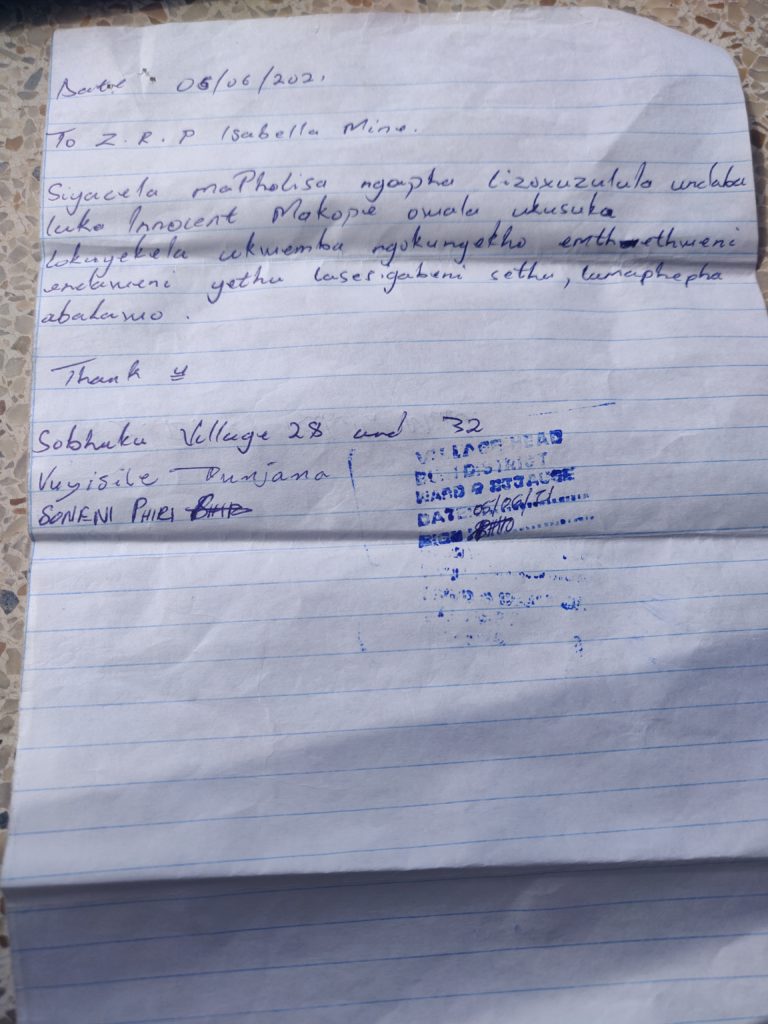 Date 05/06/2021
To Z.R.P Isabella Mine.
Siyacela maPholisa ngapha lizoxuzulula undaba
luko Innocent Makopie owala ukusuka
lokuyekela ukwemba ngokungekho emthwethweni
endaweni yethu lasesigabeni sethu, lamaphepha
abalawo.
Thank u
Sobhuku Village 28 and 32
Vuyisile Dunjana
SONENI PHIRI
VILLAGE HEAD
DISTRICT
WARD 9
DATE: 05/06/21
SIGN